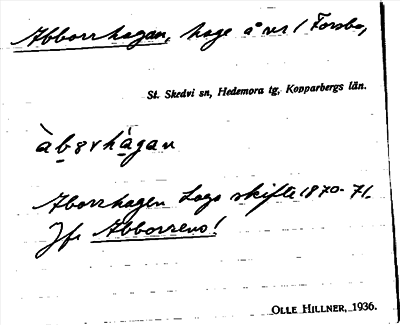 Abborrhagan, hage å nr 1 Forsbo,
St. Skedvi sn, Hedemora tg, Kopparbergs län.
àbₒrhàgan
Aborrhagen Laga skifte 1870-71.
Jfr Abborrens!
OLLE HILLNER, 1936.